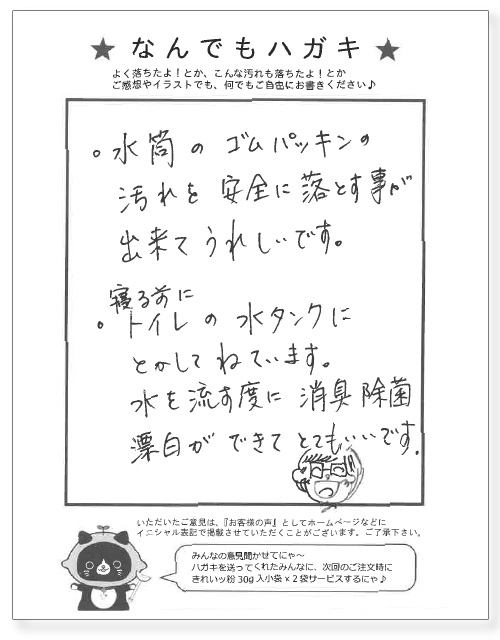 ★ なんでもハガキ ★
よく落ちたよ！とか、こんな汚れも落ちたよ！とか
ご感想やイラストでも、何でもご自由にお書きください♪
。水筒のゴムパッキンの
汚れを安全に落とす事が
出来てうれしいです。
寝る前に
。トイレの水タンクに
とかしてねています。
水を流す度に消臭除菌
漂白ができてとてもいいです。
いただいたご意見は、『お客様の声』としてホームページなどに
イニシャル表記で掲載させていただくことがございます。ご了承下さい。
みんなの意見聞かせてにゃ～
ハガキを送ってくれたみんなに、次回のご注文時に
きれいッ粉 30g 入小袋 x 2 袋サービスするにゃ♪